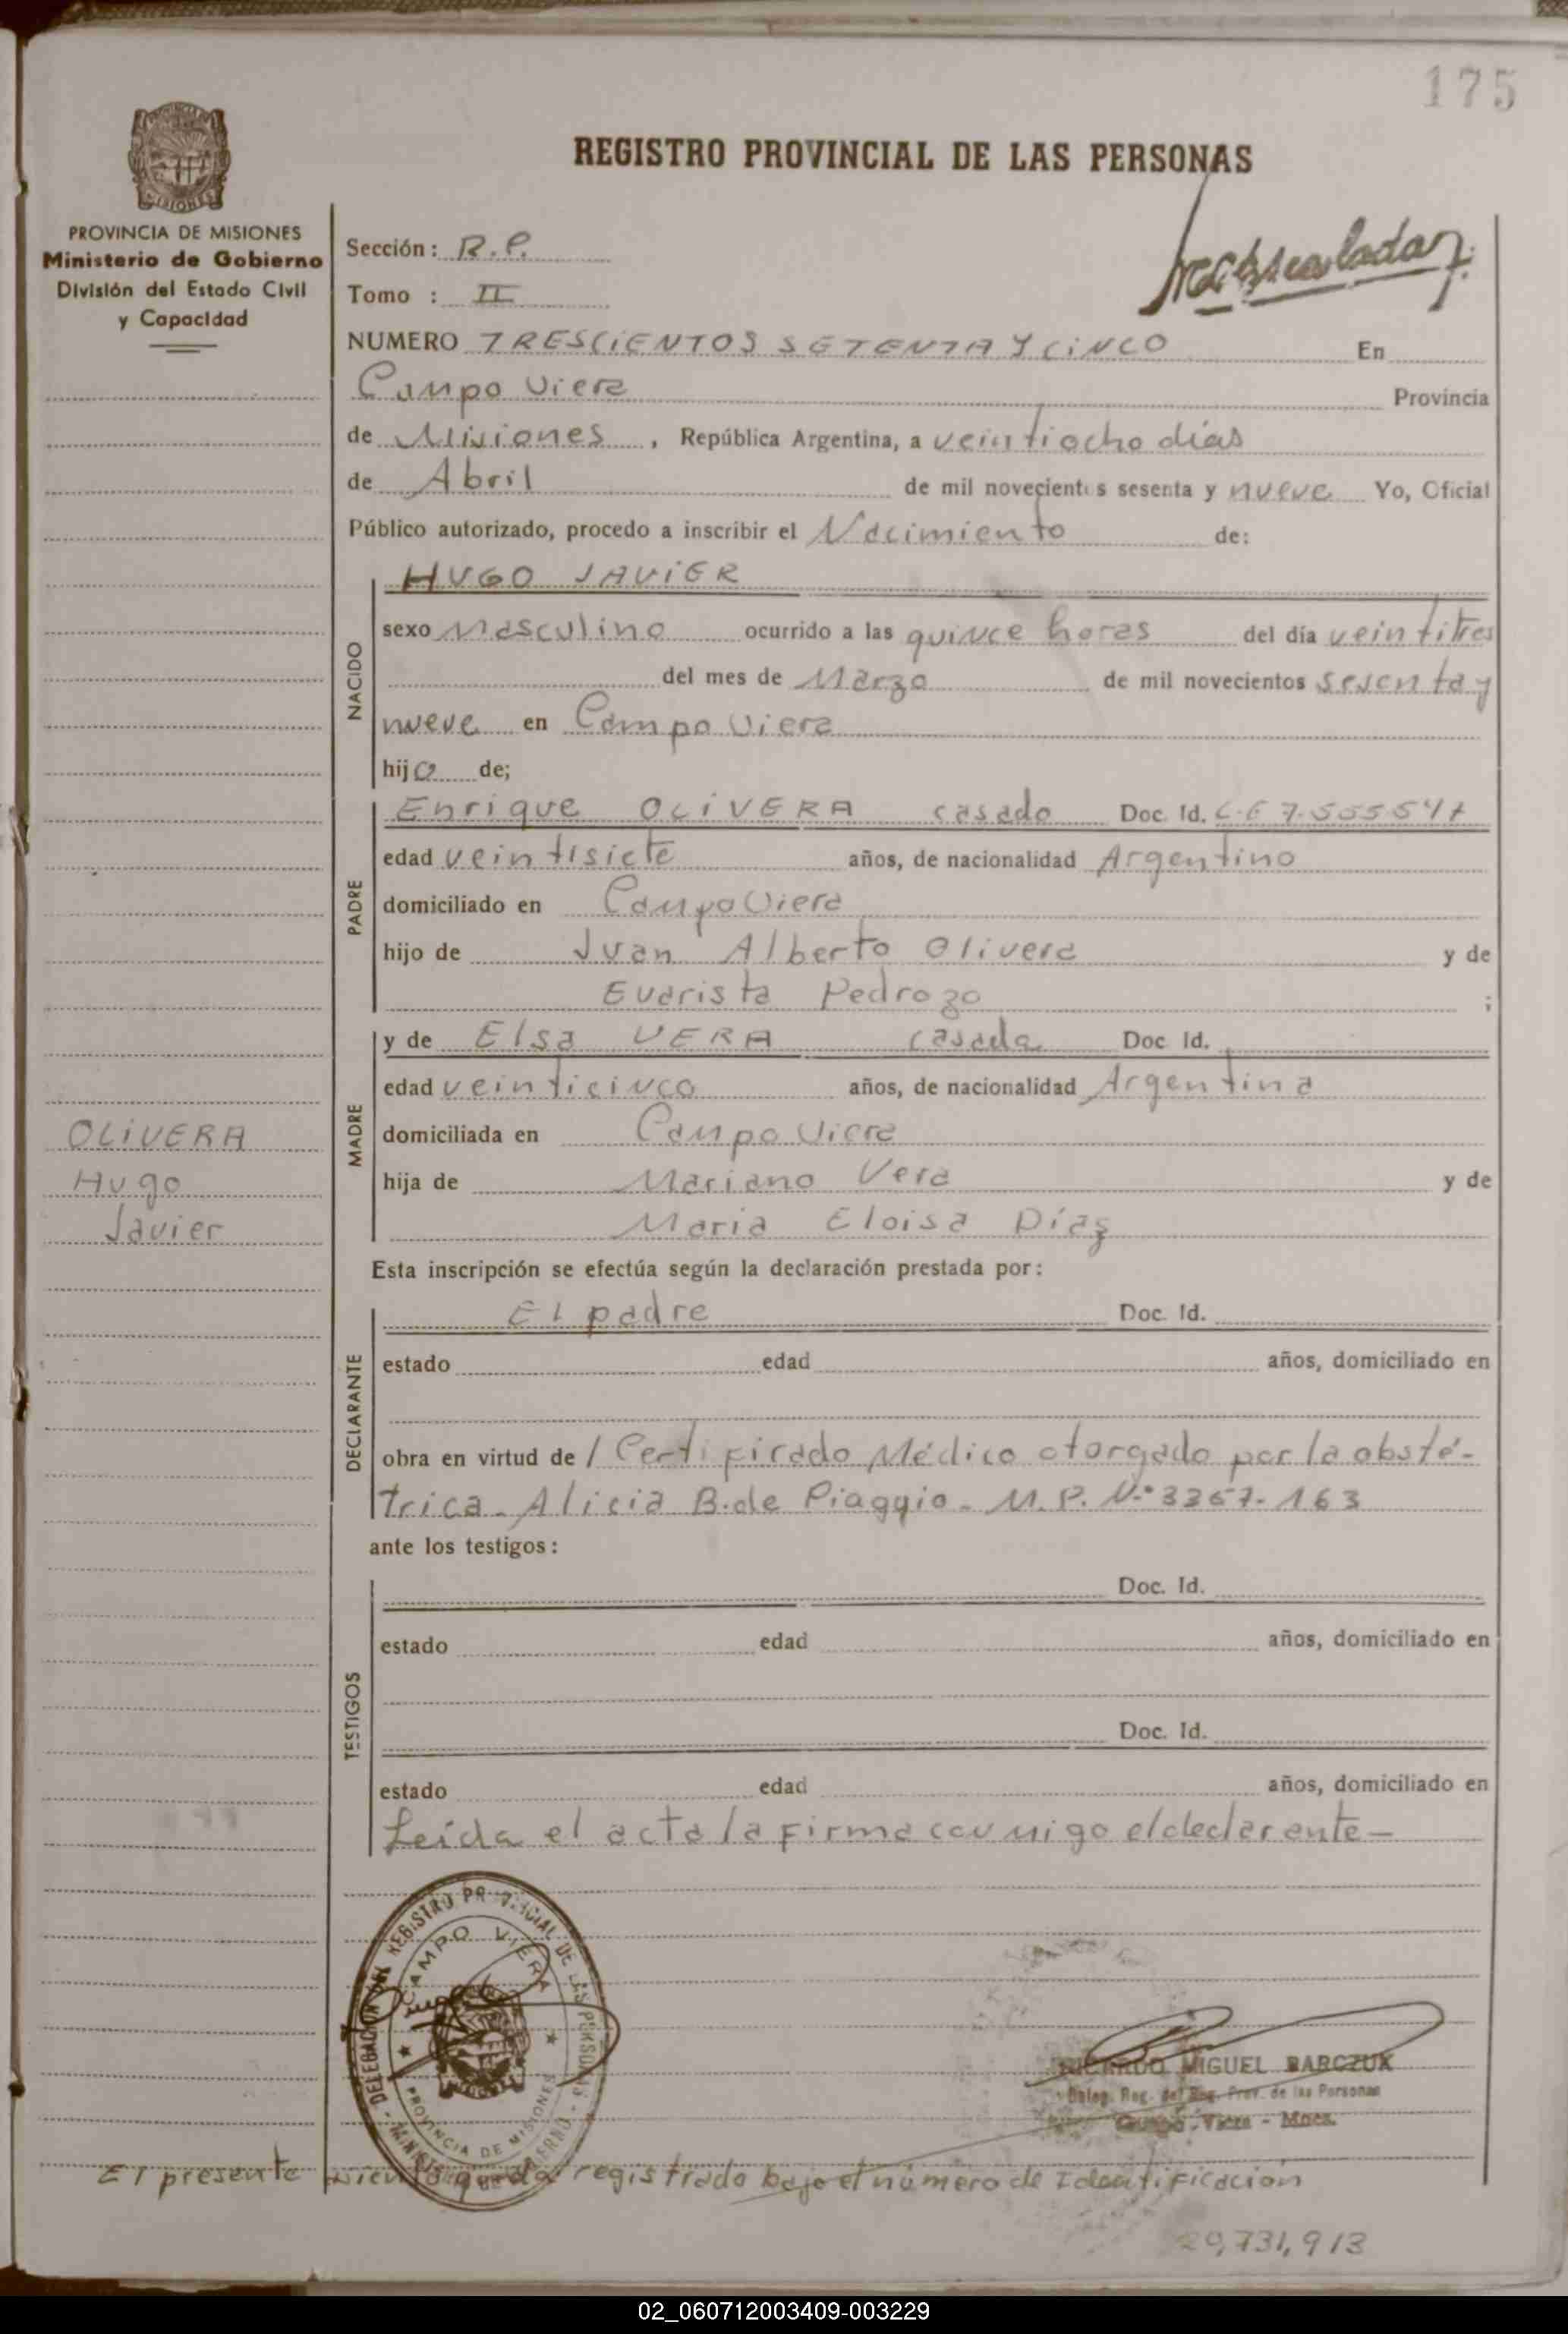 175
REGISTRO PROVINCIAL DE LAS PERSONAS
PROVINCIA DE MISIONES
Ministerio de Gobierno
División del Estado Civil
y Capacidad
Sección: R.P.
Tomo : II
NUMERO TRESCIENTOS SETENTA Y CINCO En
Campo Viera Provincia
de Misiones, República Argentina, a veintiocho días
de Abril de mil novecientos sesenta y nueve Yo, Oficial
Público autorizado, procedo a inscribir el Nacimiento de:
NACIDO
HUGO JAVIER
sexo Masculino ocurrido a las quince horas del día veintitres
del mes de Marzo de mil novecientos sesenta y
nueve en Campo Viera
hijo de;
PADRE
Enrique OLIVERA casado Doc. Id.
edad veintisiete años, de nacionalidad Argentino
domiciliado en Campo Viera
hijo de Juan Alberto Olivera y de
Evarista Pedrozo ;
MADRE
y de Elsa VERA casada Doc Id.
edad veinticinco años, de nacionalidad Argentina
domiciliada en Campo Viera
hija de Mariano Vera y de
Maria Eloisa Díaz
OLIVERA
Hugo
Javier
Esta inscripción se efectúa según la declaración prestada por:
DECLARANTE
El padre Doc. Id.
estado edad años, domiciliado en
obra en virtud de / Certificado Médico otorgado por la obsté-
trica. Alicia B. de Piaggio. M.P. N.º 3367-163
ante los testigos:
TESTIGOS
Doc. Id.
estado edad años, domiciliado en
Doc. Id.
estado edad años, domiciliado en
Leída el acta la firma conmigo el declarante-
CAMPO VIERA
PROVINCIA DE MISIONES
RICARDO MIGUEL BARCZUK
Deleg. Reg. del Reg. Prov. de las Personas
Campo Viera - Mnes.
El presente queda registrado bajo el número de Identificación
20,731,913
02_060712003409-003229